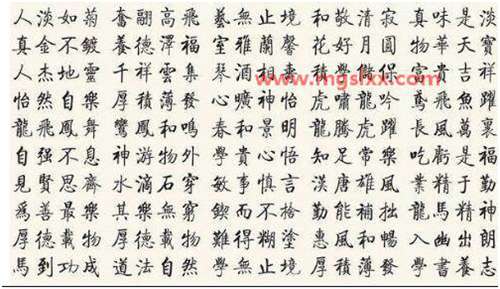 人淡如菊 奮翮高飛 藝無止境 和敬清寂 真味是淡
真金不鍍 養德澤福 室雅蘭馨 花好月圓 物華天寶
人杰地靈 千祥雲集 琴酒相 積學 保 富貴吉祥
www.mgslxx.com
怡然自樂 厚積薄發 心曠神怡 虎嘯龍吟 鳶飛魚躍
龍飛鳳舞 鸞鳳和鳴 春和景明 龍騰虎躍 長風萬裏
自强不息 神游物外 學貴心悟 知足常樂 吃虧是福
見賢思齊 水滴石穿 敏事慎言 漢唐雄風 業精于勤
爲善最樂 其樂無窮 鍥而不捨 勤能補拙 龍馬精神
厚德載物 厚德載物 難得糊塗 惠風和暢 入幽出朗
馬到功成 道法自然 學無止境 厚積薄發 學書養志